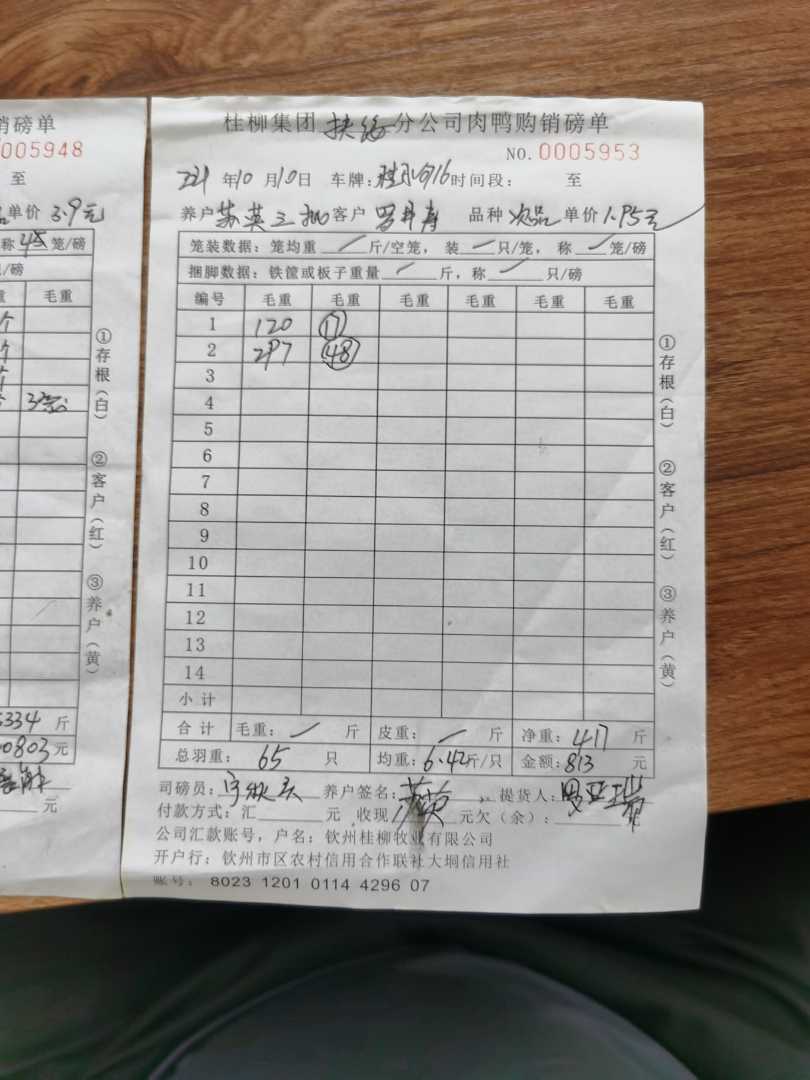 销磅单
0005948
至
单价 3.9元
称 45 笼/磅
只/磅
重 毛重
①存根(白)
②客户(红)
③养户(黄)
5334 斤
0803 元
元
桂柳集团 扶绥 分公司肉鸭购销磅单
NO.0005953
221 年10 月10日 车牌: 时间段: 至
养户 苏英 客户 罗 品种 次品 单价 1.95元
笼装数据:笼均重 / 斤/空笼, 装 / 只/笼, 称 / 笼/磅
捆脚数据:铁筐或板子重量 / 斤,称 / 只/磅
编号 毛重 毛重 毛重 毛重 毛重 毛重
1 120 17
2 297 48
3
4
5
6
7
8
9
10
11
12
13
14
小计
合计 毛重: / 斤 皮重: / 斤 净重: 417 斤
总羽重: 65 只 均重: 6.42 斤/只 金额: 813 元
①存根(白)
②客户(红)
③养户(黄)
司磅员: 养户签名: 苏英 提货人: 罗
付款方式:汇 元 收现 元欠(余):
公司汇款账号,户名:钦州桂柳牧业有限公司
开户行:钦州市区农村信用合作联社大垌信用社
账号: 8023 1201 0114 4296 07